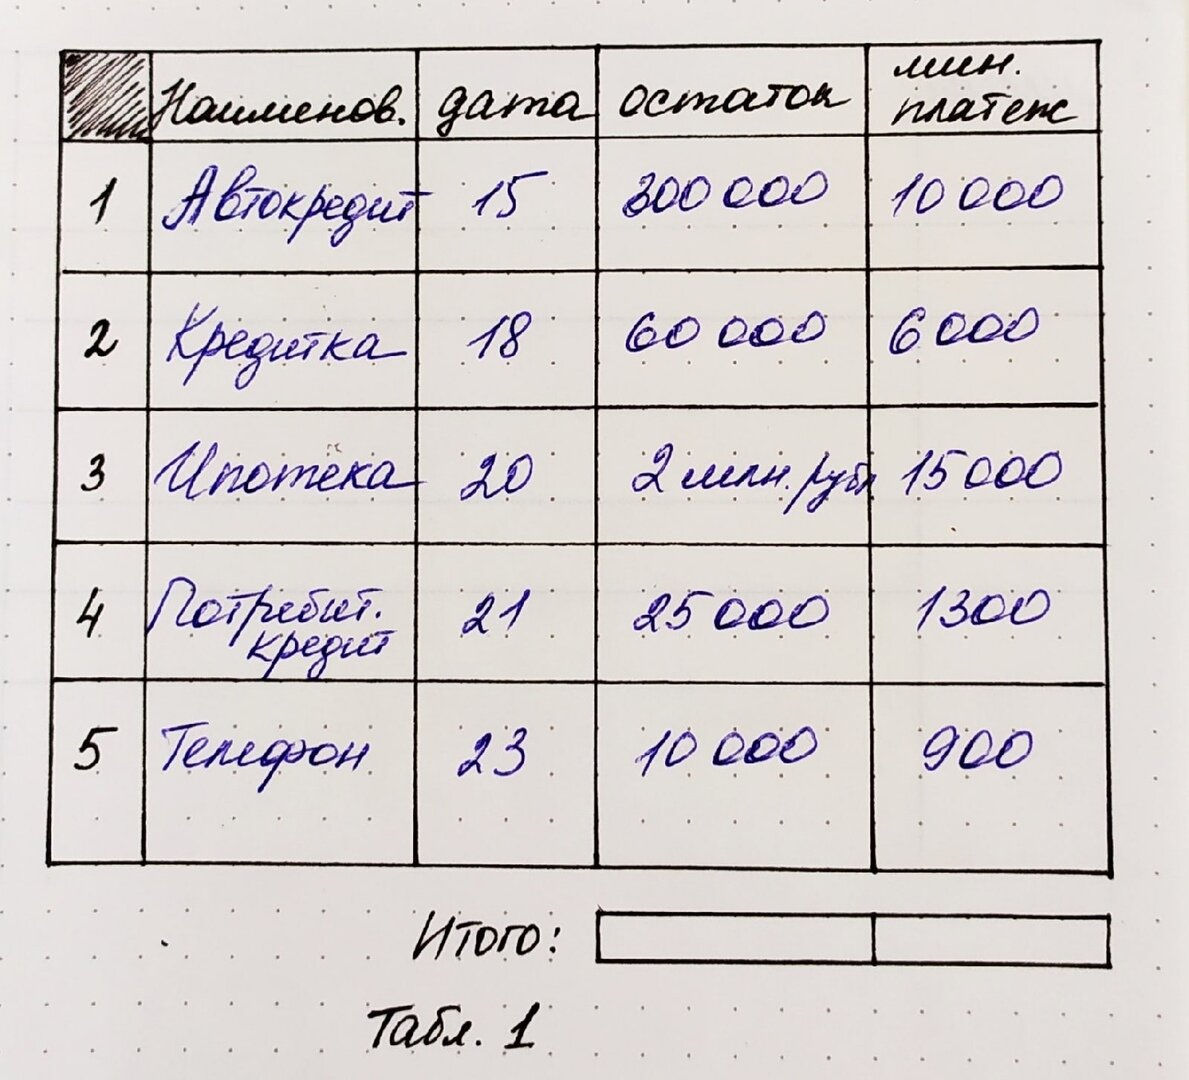 Наименов. дата остаток мин. платеж
1 Автокредит 15 300 000 10 000
2 Кредитка 18 60 000 6 000
3 Ипотека 20 2 млн. руб 15 000
4 Потребит. кредит 21 25 000 1300
5 Телефон 23 10 000 900
Итого:
Табл. 1